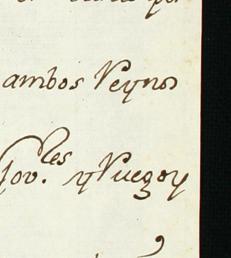 ambos Reynos
Gov.les y Ruego y